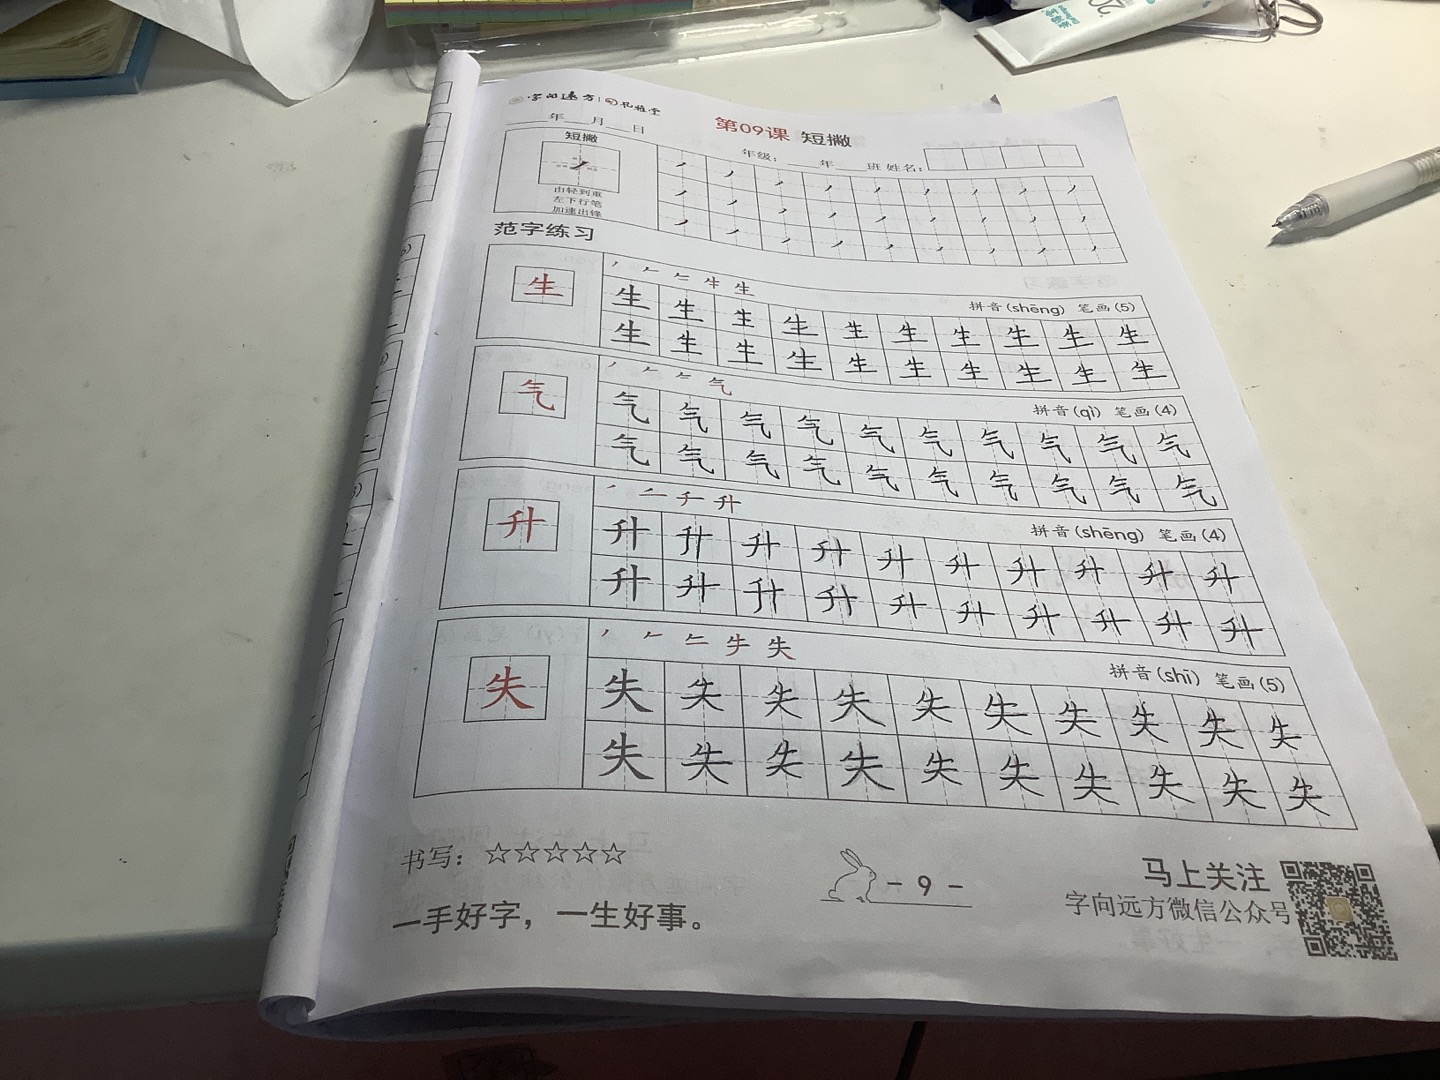 字向远方 孔雅堂
第09课 短撇
年 月 日
年级： 年 班 姓名：
短撇
由轻到重
左下行笔
加速出锋
范字练习
生
生
拼音(shēng) 笔画(5)
生 生 生 生 生 生 生 生 生 生
生 生 生 生 生 生 生 生 生 生
气
气
拼音(qì) 笔画(4)
气 气 气 气 气 气 气 气 气 气
气 气 气 气 气 气 气 气 气 气
升
升
拼音(shēng) 笔画(4)
升 升 升 升 升 升 升 升 升 升
升 升 升 升 升 升 升 升 升 升
失
失
拼音(shī) 笔画(5)
失 失 失 失 失 失 失 失 失 失
失 失 失 失 失 失 失 失 失 失
书写：☆☆☆☆☆
一手好字，一生好事。
- 9 -
马上关注
字向远方微信公众号